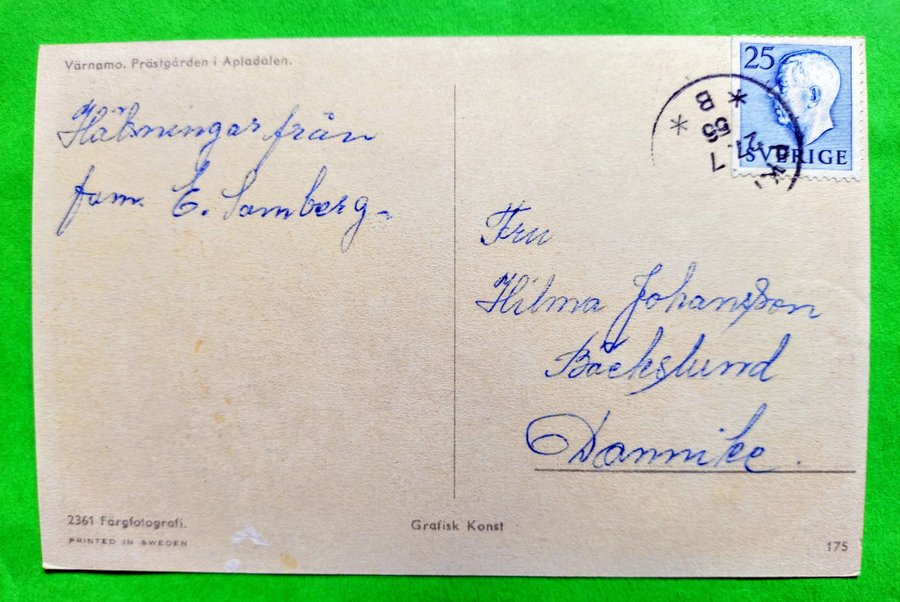 Värnamo. Prästgården i Apladalen.
Hälsningar från
fam. E. Samberg
25
SVERIGE
B
55
21.7
Fru
Hilma Johansson
Bäckslund
Dannike.
2361 Färgfotografi.
PRINTED IN SWEDEN
Grafisk Konst
175